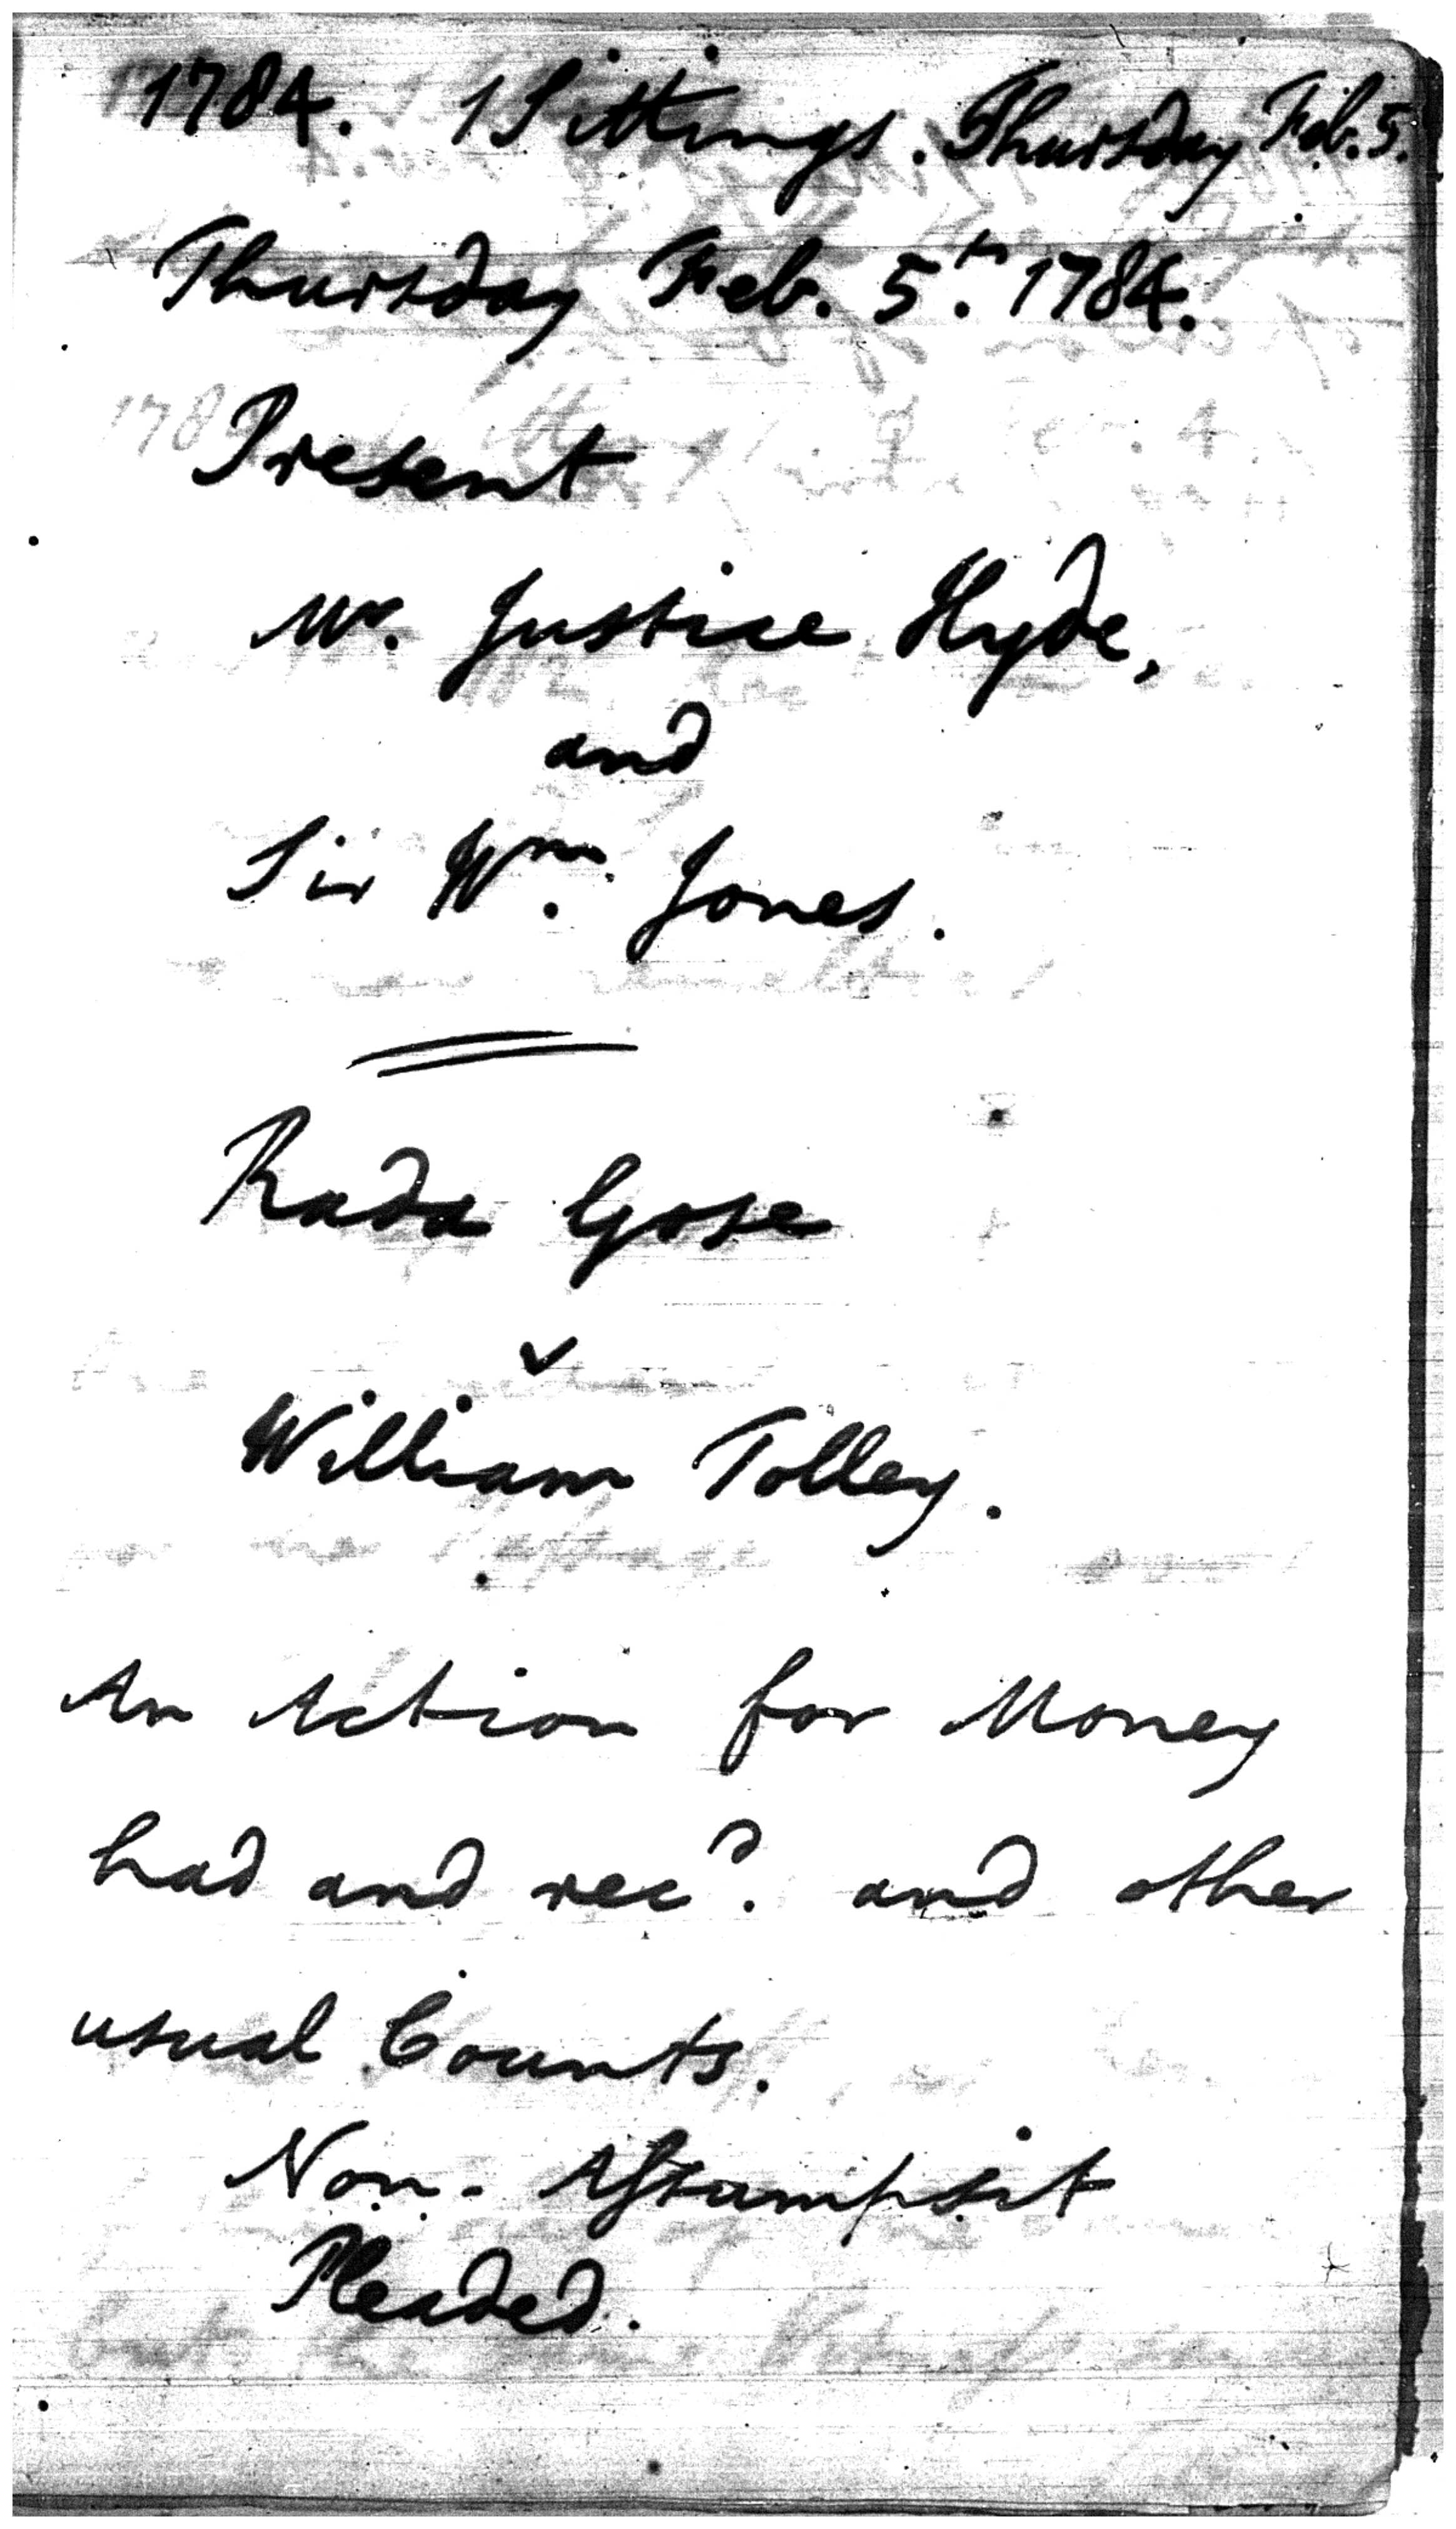 1784. 1 Sittings. Thursday Feb. 5.
Thursday Feb. 5.th 1784.
Present
Mr. Justice Hyde,
and
Sir Wm. Jones.
Rada Gose
v
William Tolley.
An Action for Money
had and recd. and other
usual Counts.
Non- Assumpsit
Pleaded.